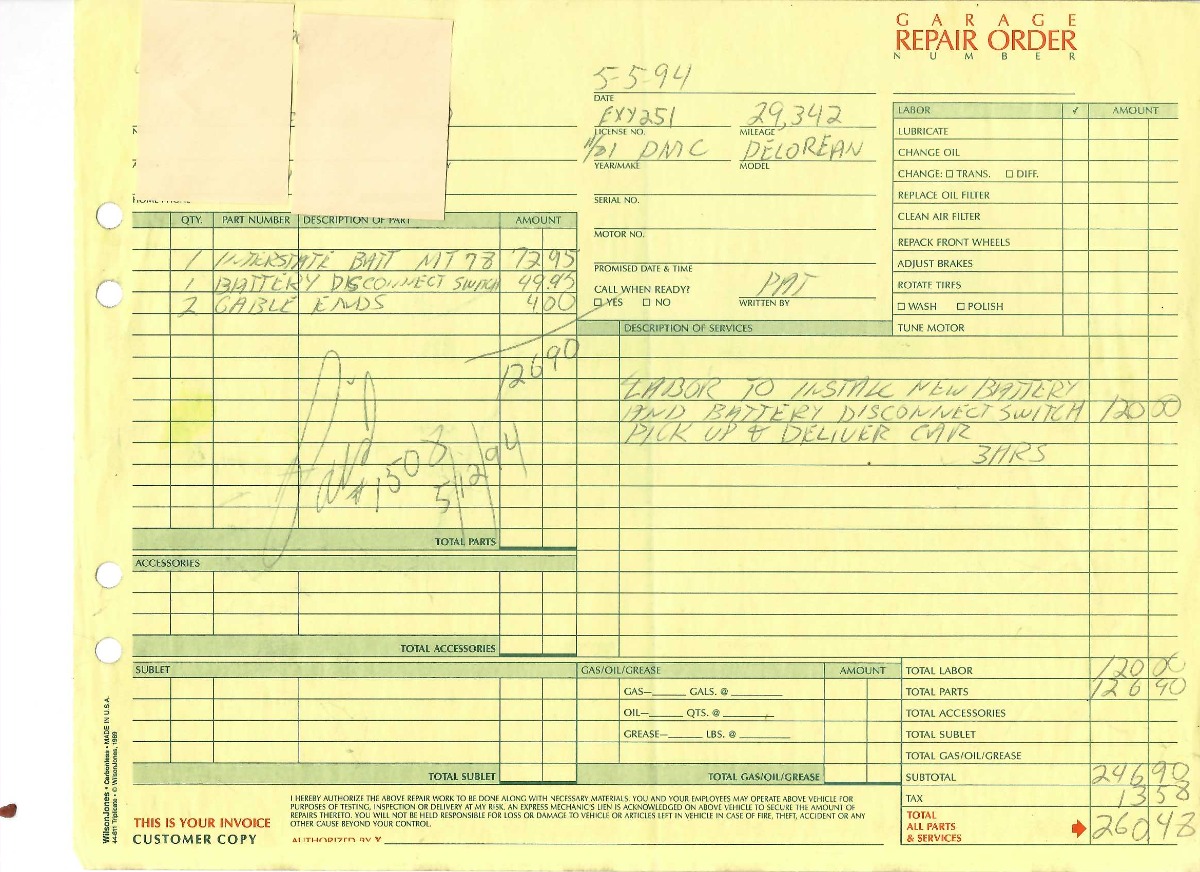 GARAGE
REPAIR ORDER
NUMBER
5-5-94
DATE
EXY251 29,342
LICENSE NO. MILEAGE
11/81 DMC DELOREAN
YEAR/MAKE MODEL
SERIAL NO.
MOTOR NO.
PROMISED DATE & TIME
CALL WHEN READY? PAT
☐ YES ☐ NO WRITTEN BY
LABOR ✓ AMOUNT
LUBRICATE
CHANGE OIL
CHANGE: ☐ TRANS. ☐ DIFF.
REPLACE OIL FILTER
CLEAN AIR FILTER
REPACK FRONT WHEELS
ADJUST BRAKES
ROTATE TIRES
☐ WASH ☐ POLISH
TUNE MOTOR
QTY. PART NUMBER DESCRIPTION OF PART AMOUNT
1 INTERSTATE BATT MT 78 72 95
1 BATTERY DISCONNECT SWITCH 49.95
2 CABLE ENDS 4 00
126 90
Paid
#1508
5/12/94
TOTAL PARTS
DESCRIPTION OF SERVICES
LABOR TO INSTALL NEW BATTERY
AND BATTERY DISCONNECT SWITCH 120 00
PICK UP & DELIVER CAR
3HRS
ACCESSORIES
TOTAL ACCESSORIES
SUBLET
TOTAL SUBLET
GAS/OIL/GREASE AMOUNT
GAS— GALS. @
OIL— QTS. @
GREASE— LBS. @
TOTAL GAS/OIL/GREASE
TOTAL LABOR 120 00
TOTAL PARTS 126 90
TOTAL ACCESSORIES
TOTAL SUBLET
TOTAL GAS/OIL/GREASE
SUBTOTAL 246 90
TAX 13 58
TOTAL
ALL PARTS
& SERVICES 260 48
I HEREBY AUTHORIZE THE ABOVE REPAIR WORK TO BE DONE ALONG WITH NECESSARY MATERIALS. YOU AND YOUR EMPLOYEES MAY OPERATE ABOVE VEHICLE FOR
PURPOSES OF TESTING, INSPECTION OR DELIVERY AT MY RISK. AN EXPRESS MECHANIC'S LIEN IS ACKNOWLEDGED ON ABOVE VEHICLE TO SECURE THE AMOUNT OF
REPAIRS THERETO. YOU WILL NOT BE HELD RESPONSIBLE FOR LOSS OR DAMAGE TO VEHICLE OR ARTICLES LEFT IN VEHICLE IN CASE OF FIRE, THEFT, ACCIDENT OR ANY
OTHER CAUSE BEYOND YOUR CONTROL.
AUTHORIZED BY X
THIS IS YOUR INVOICE
CUSTOMER COPY
WilsonJones • Carbonless • MADE IN U.S.A.
44-811 Triplicate • © WilsonJones, 1989